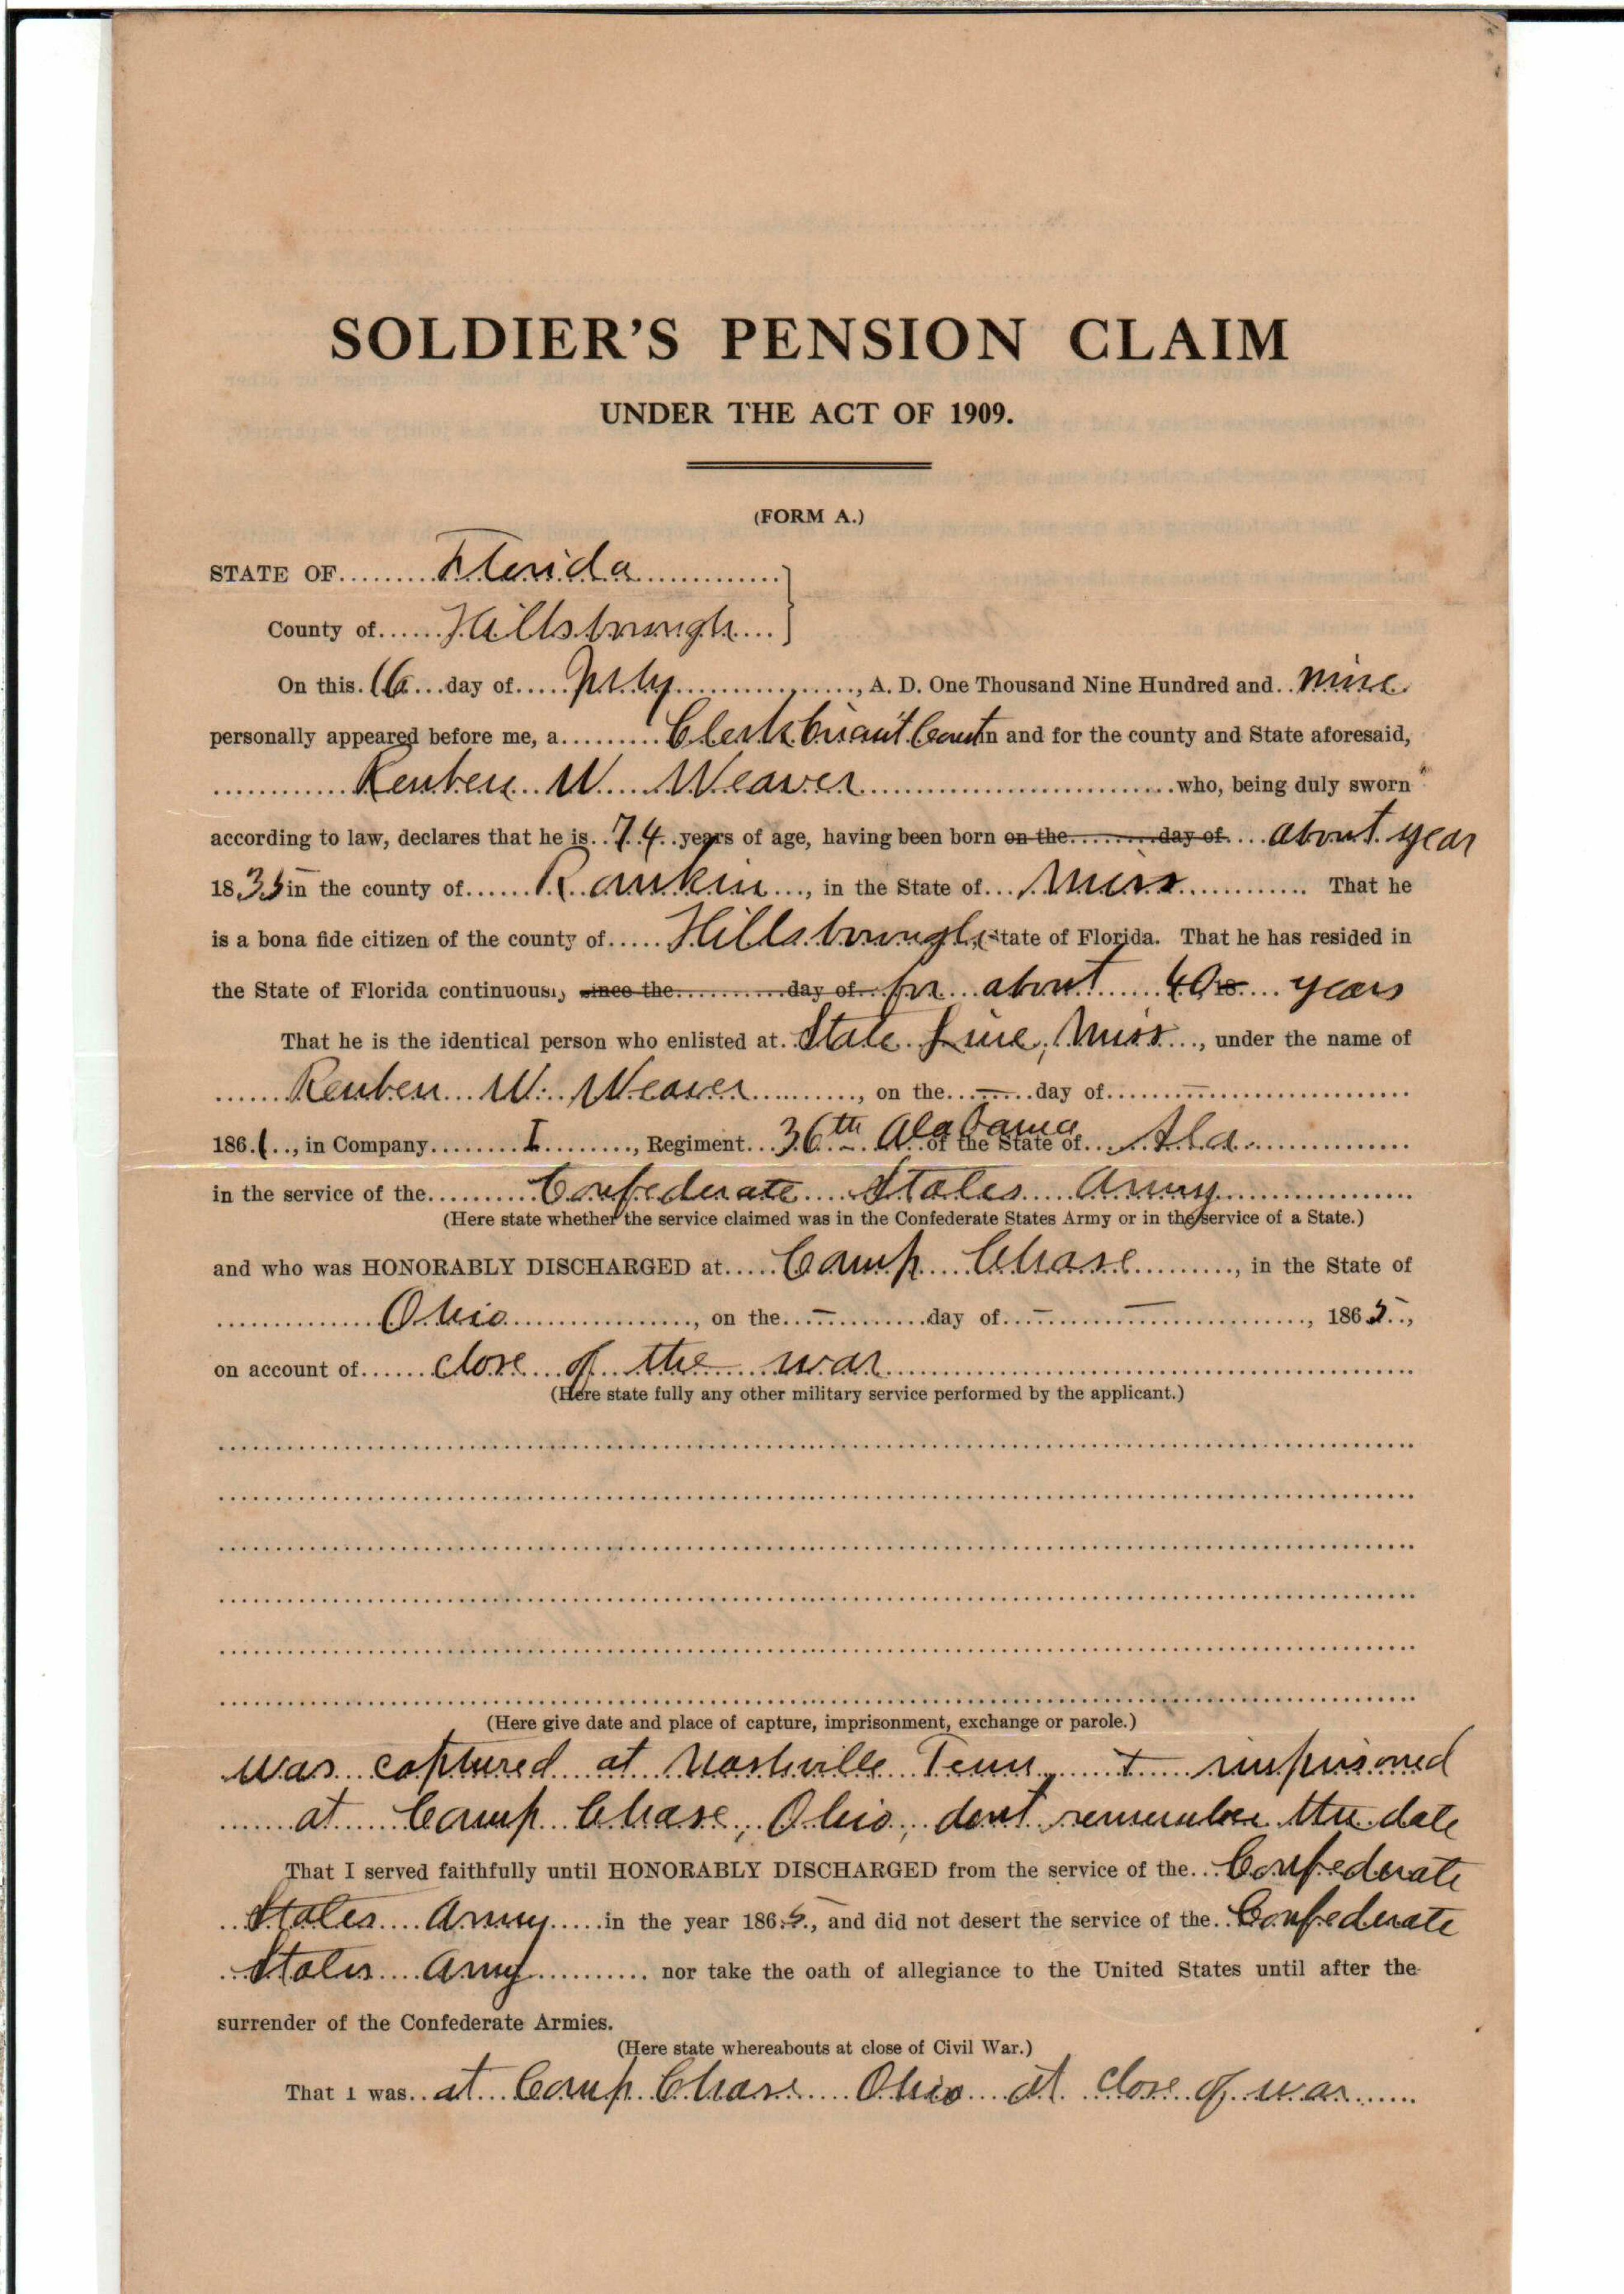 SOLDIER'S PENSION CLAIM
UNDER THE ACT OF 1909.
(FORM A.)
STATE OF Florida
County of Hillsborough
On this 16 day of July, A. D. One Thousand Nine Hundred and nine
personally appeared before me, a Clerk Circuit Court in and for the county and State aforesaid,
Reuben W. Weaver who, being duly sworn
according to law, declares that he is 74 years of age, having been born on the day of about year
1835 in the county of Rankin, in the State of Miss. That he
is a bona fide citizen of the county of Hillsborough, State of Florida. That he has resided in
the State of Florida continuously since the day of for about 40 18 years
That he is the identical person who enlisted at State Line, Miss, under the name of
Reuben W. Weaver, on the — day of —
1861, in Company I, Regiment 36th Alabama of the State of Ala
in the service of the Confederate States Army
(Here state whether the service claimed was in the Confederate States Army or in the service of a State.)
and who was HONORABLY DISCHARGED at Camp Chase, in the State of
Ohio, on the — day of — —, 1865,
on account of close of the war
(Here state fully any other military service performed by the applicant.)
(Here give date and place of capture, imprisonment, exchange or parole.)
was captured at Nashville Tenn, + imprisoned
at Camp Chase, Ohio, dont remember the date
That I served faithfully until HONORABLY DISCHARGED from the service of the Confederate
States Army in the year 1865, and did not desert the service of the Confederate
States Army nor take the oath of allegiance to the United States until after the
surrender of the Confederate Armies.
(Here state whereabouts at close of Civil War.)
That I was at Camp Chase Ohio at close of war